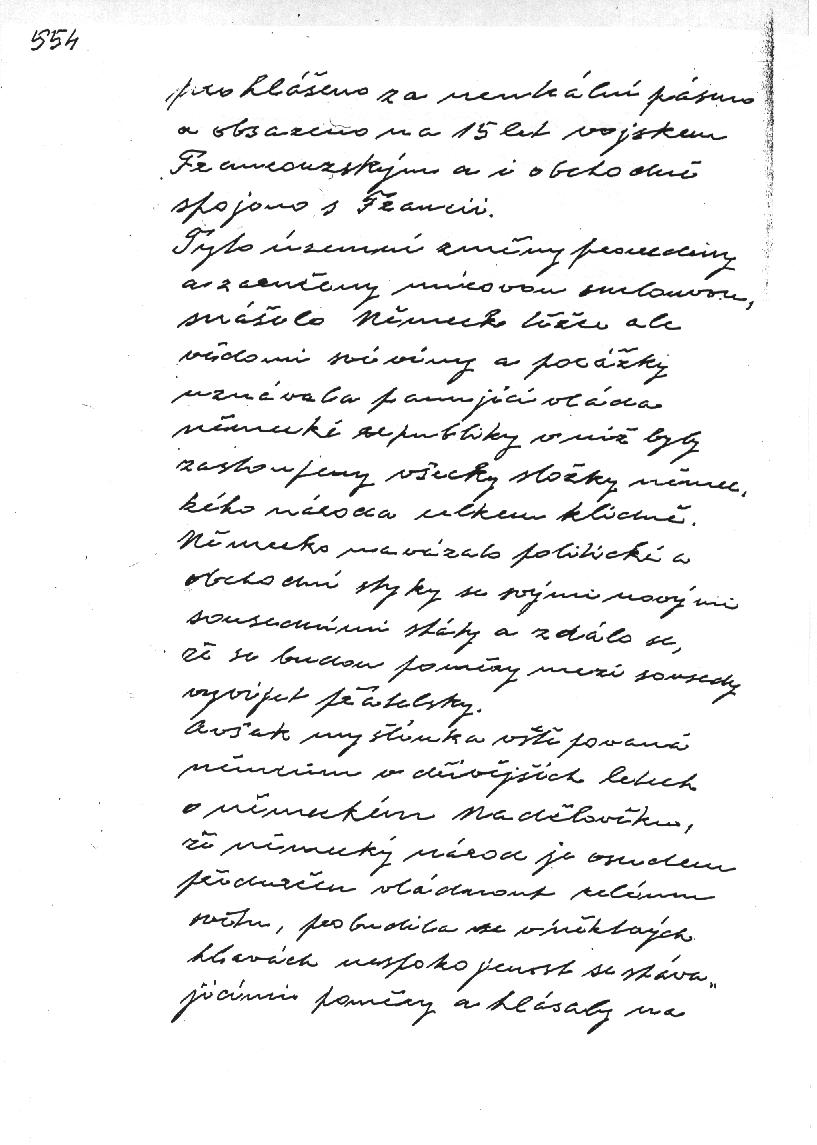 554
prohlášeno za neutrální pásmo
a obsazeno na 15 let vojskem
Francouzským a i obchodně
spojeno s Francii.
Tyto územní změny provedeny
a zaručeny mírovou smlouvou,
snášelo Německo těžce ale
vědomi své viny a porážky
uznávala panující vláda
německé republiky v níž byly
zastoupeny všecky složky němec,
kého národa celkem klidně.
Německo navázalo politické a
obchodní styky se svými novými
sousedními státy a zdálo se,
že se budou poměry mezi sousedy
vyvíjet přátelsky.
Avšak myšlénka vštěpovaná
němcům v dřívějších letech
o německém Nadčlověku,
že německý národ je osudem
předurčen vládnout celému
světu, probudila se v některých
hlavách nespokojenost se stáva„
jícími poměry a hlásaly na